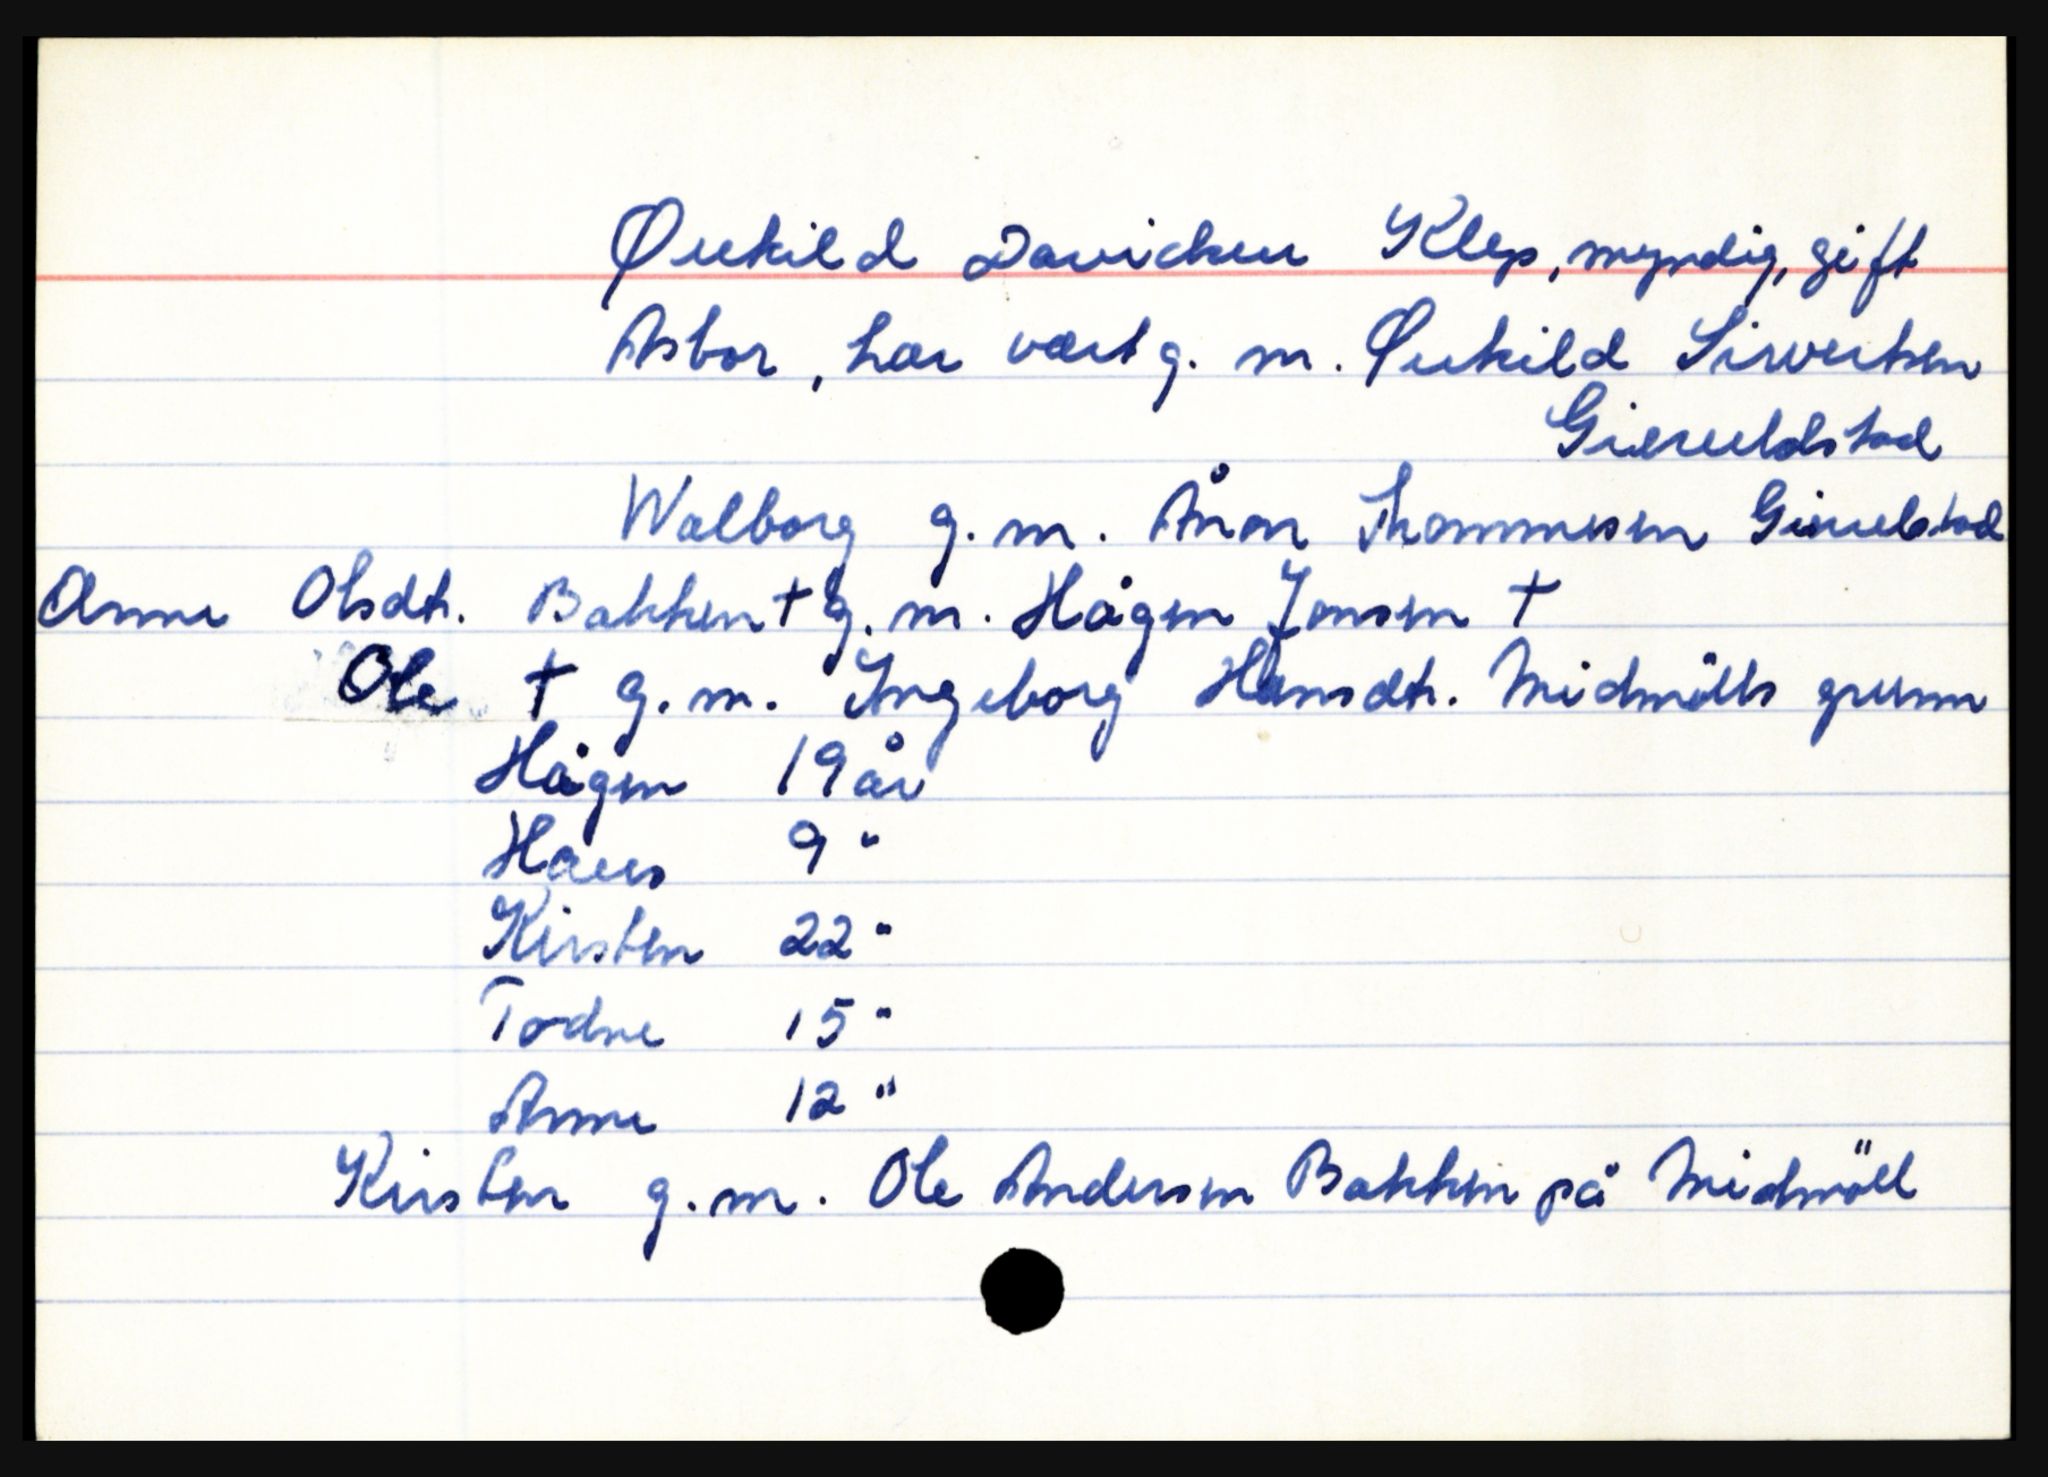 Ørkild Davidsen Klep, myndig, gift
Asbor, har vært g. m. Ørkild Sirvertsen
Gierueldstad
Walborg g. m. Aanon Thommesen Gieruelstad
Anne Olsdtr. Bakken † g. m. Hågen Jonsen †
Ole † g. m. Ingeborg Hansdtr. Midmölls grunn
Hågen 19 år
Hans 9 "
Kirsten 22 "
Todne 15 "
Anne 12 "
Kirsten g. m. Ole Andersen Bakken på Midmöll